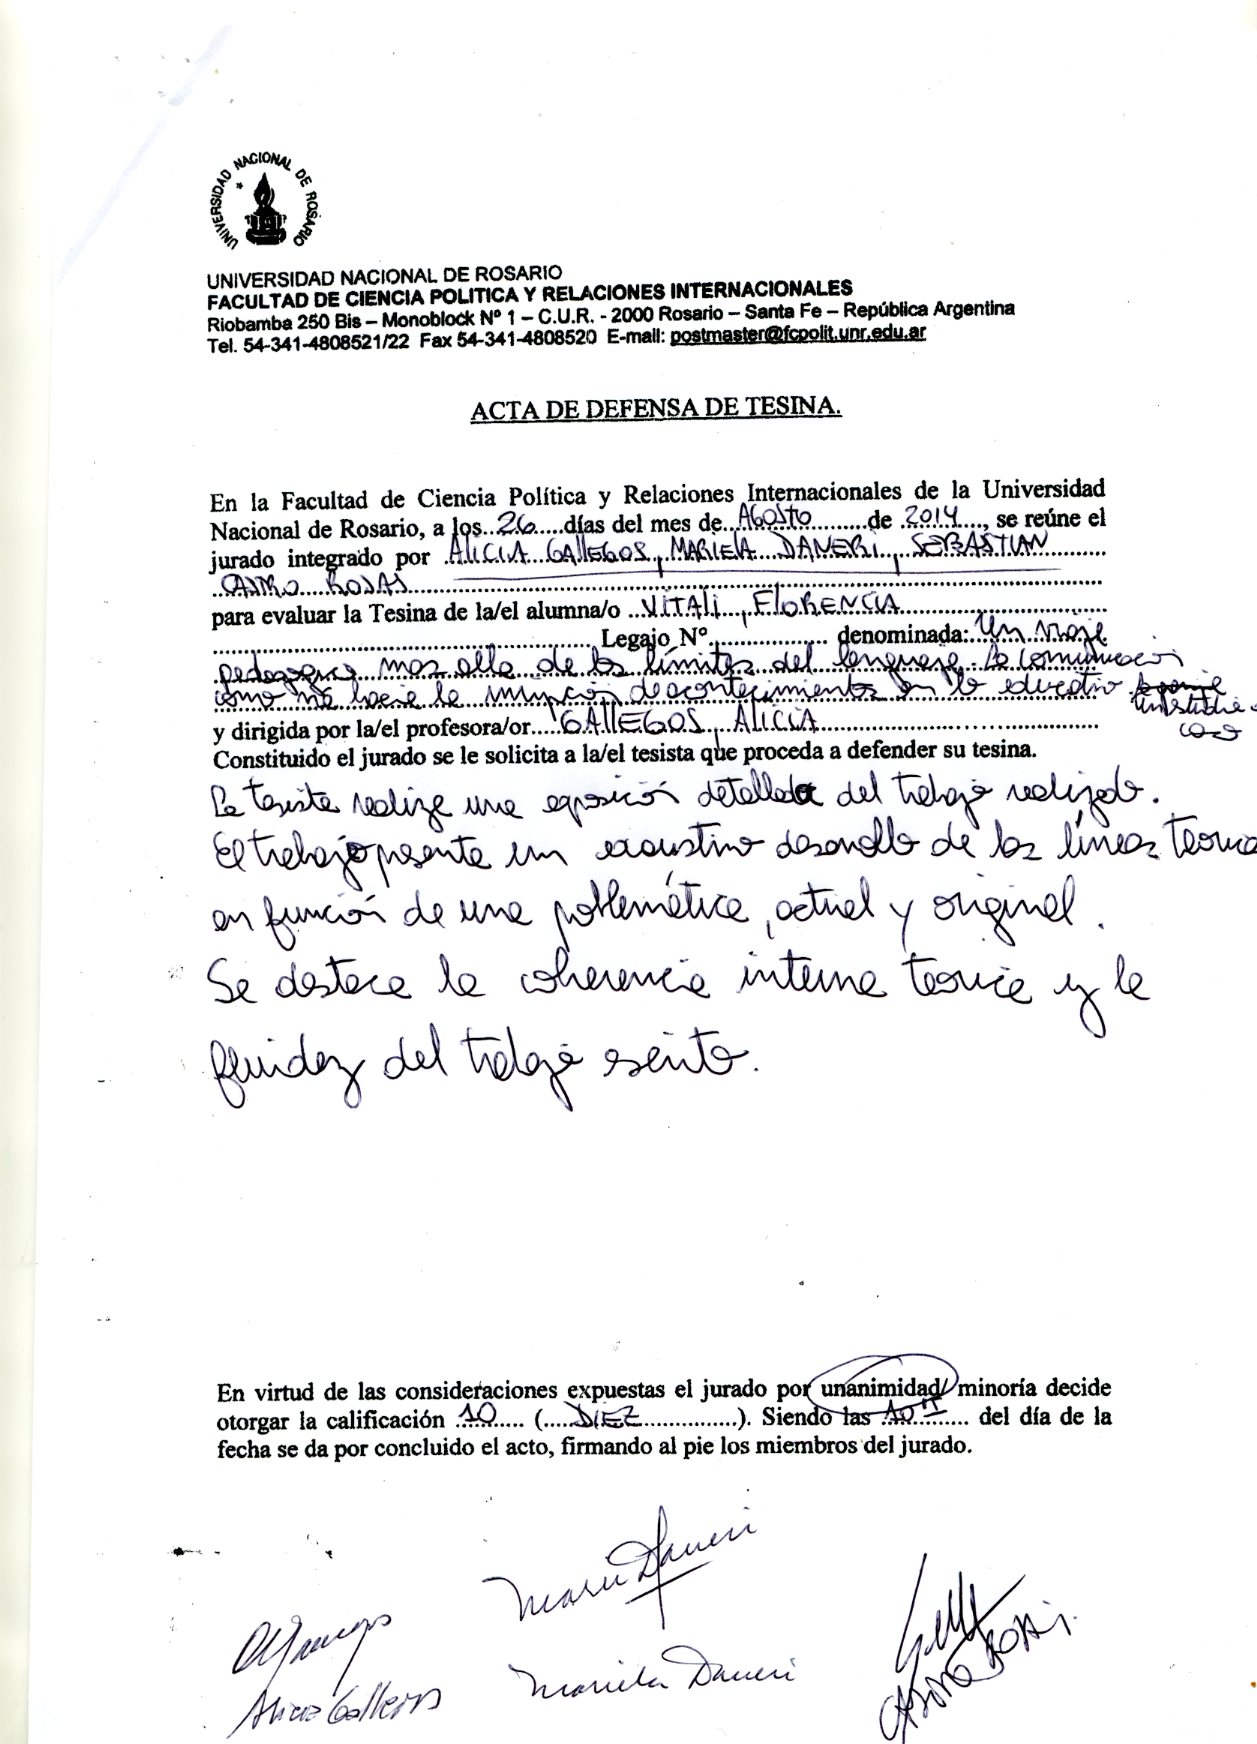 UNIVERSIDAD NACIONAL DE ROSARIO
UNIVERSIDAD NACIONAL DE ROSARIO
FACULTAD DE CIENCIA POLITICA Y RELACIONES INTERNACIONALES
Riobamba 250 Bis – Monoblock Nº 1 – C.U.R. - 2000 Rosario – Santa Fe – República Argentina
Tel. 54-341-4808521/22 Fax 54-341-4808520 E-mail: postmaster@fcpolit.unr.edu.ar
ACTA DE DEFENSA DE TESINA.
En la Facultad de Ciencia Política y Relaciones Internacionales de la Universidad
Nacional de Rosario, a los 26 días del mes de Agosto de 2014, se reúne el
jurado integrado por ALICIA GALLEGOS, MARIELA DANERI, SEBASTIAN
CASTRO ROJAS
para evaluar la Tesina de la/el alumna/o VITALI, FLORENCIA
Legajo Nº denominada: Un viaje
pedagógico mas alla de los límites del lenguaje. La comunicación
como nos hacia la irrupción de acontecimientos en lo educativo
Un estudio de
caso
y dirigida por la/el profesora/or GALLEGOS, ALICIA
Constituido el jurado se le solicita a la/el tesista que proceda a defender su tesina.
La tesista realiza una exposición detallada del trabajo realizado.
El trabajo presenta un exaustivo desarrollo de las líneas teorica
en función de una problemática, actual y original.
Se destaca la coherencia interna teorica y la
fluidez del trabajo escrito.
En virtud de las consideraciones expuestas el jurado por unanimidad/ minoría decide
otorgar la calificación 10 (DIEZ). Siendo las 10 del día de la
fecha se da por concluido el acto, firmando al pie los miembros del jurado.
Daneri
Alicia Gallegos
Mariela Daneri
CASTRO ROJAS